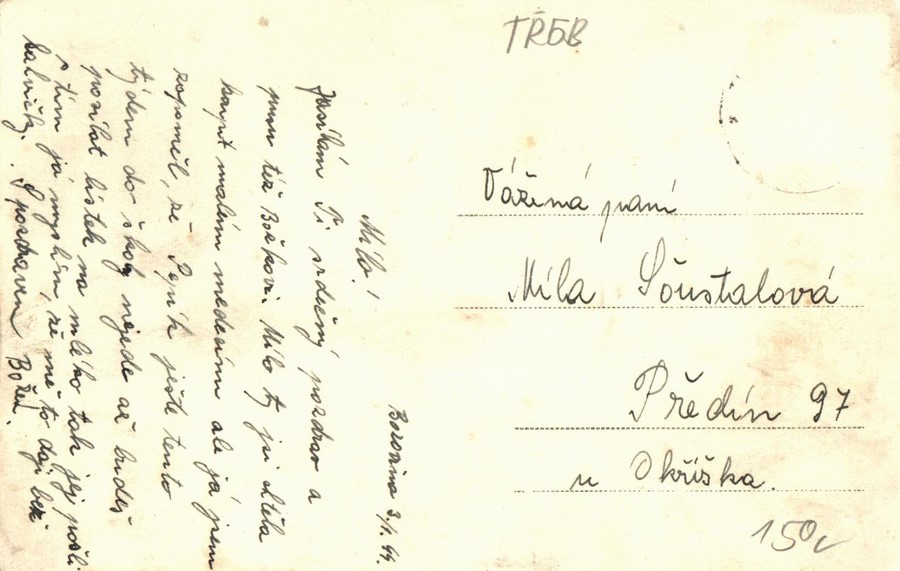 TŘEB
Borovina 3/1. 44.
Mílo!
Posílám Ti srdečný pozdrav a
pusu též Božkovi. Mílo ty jsi chtěla
koupit malým medecínu ale já jsem
zapoměl, že Pepík ještě tento
týden do školy nejede až budeš
posílat lístek na mléko tak jej pošli
s tím já myslím, že mě to dají bez
balíčky. S pozdravem Božen.
Vážená paní
Míla Šoustalová
Předín 97
u Okříška.
150,-